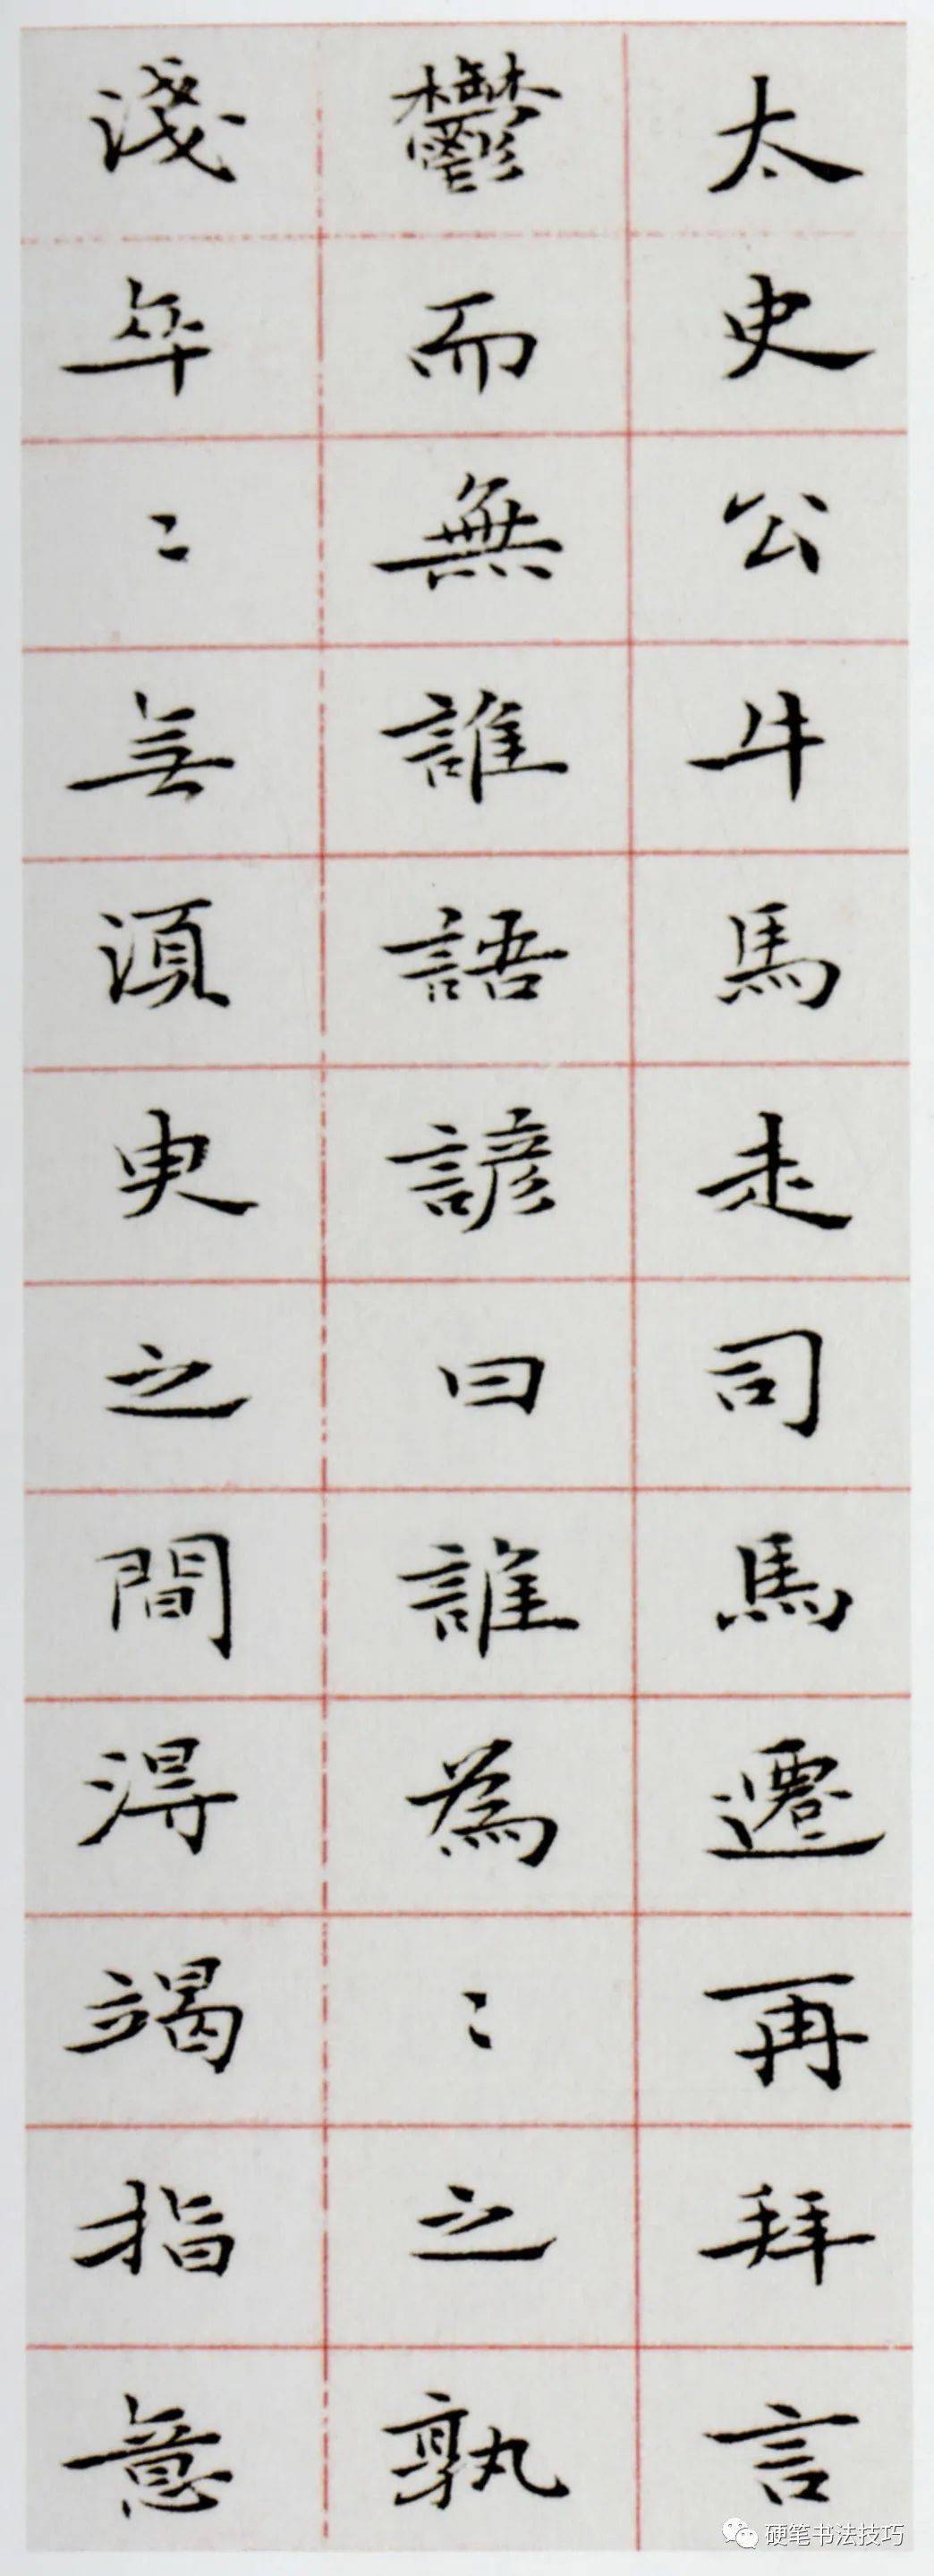 太史公牛馬走司馬遷再拜言
鬱而無誰語諺曰誰為〻之孰
淺卒〻無須臾之間得竭指意
硬笔书法技巧